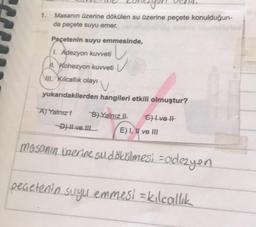 1. Masanın üzerine dökülen su üzerine peçete konulduğun-
da peçete suyu emer.
Peçetenin suyu emmesinde,
I. Adezyon kuvveti
II. Kohezyon kuvveti
III. Kılcallık olayı
yukarıdakilerden hangileri etkili olmuştur?
A) Yalnız I B) Yalnız II C) I ve II
D) II ve III E) I, II ve III
masanın üzerine su dökülmesi =adezyon
peçetenin suyu emmesi =kılcallık